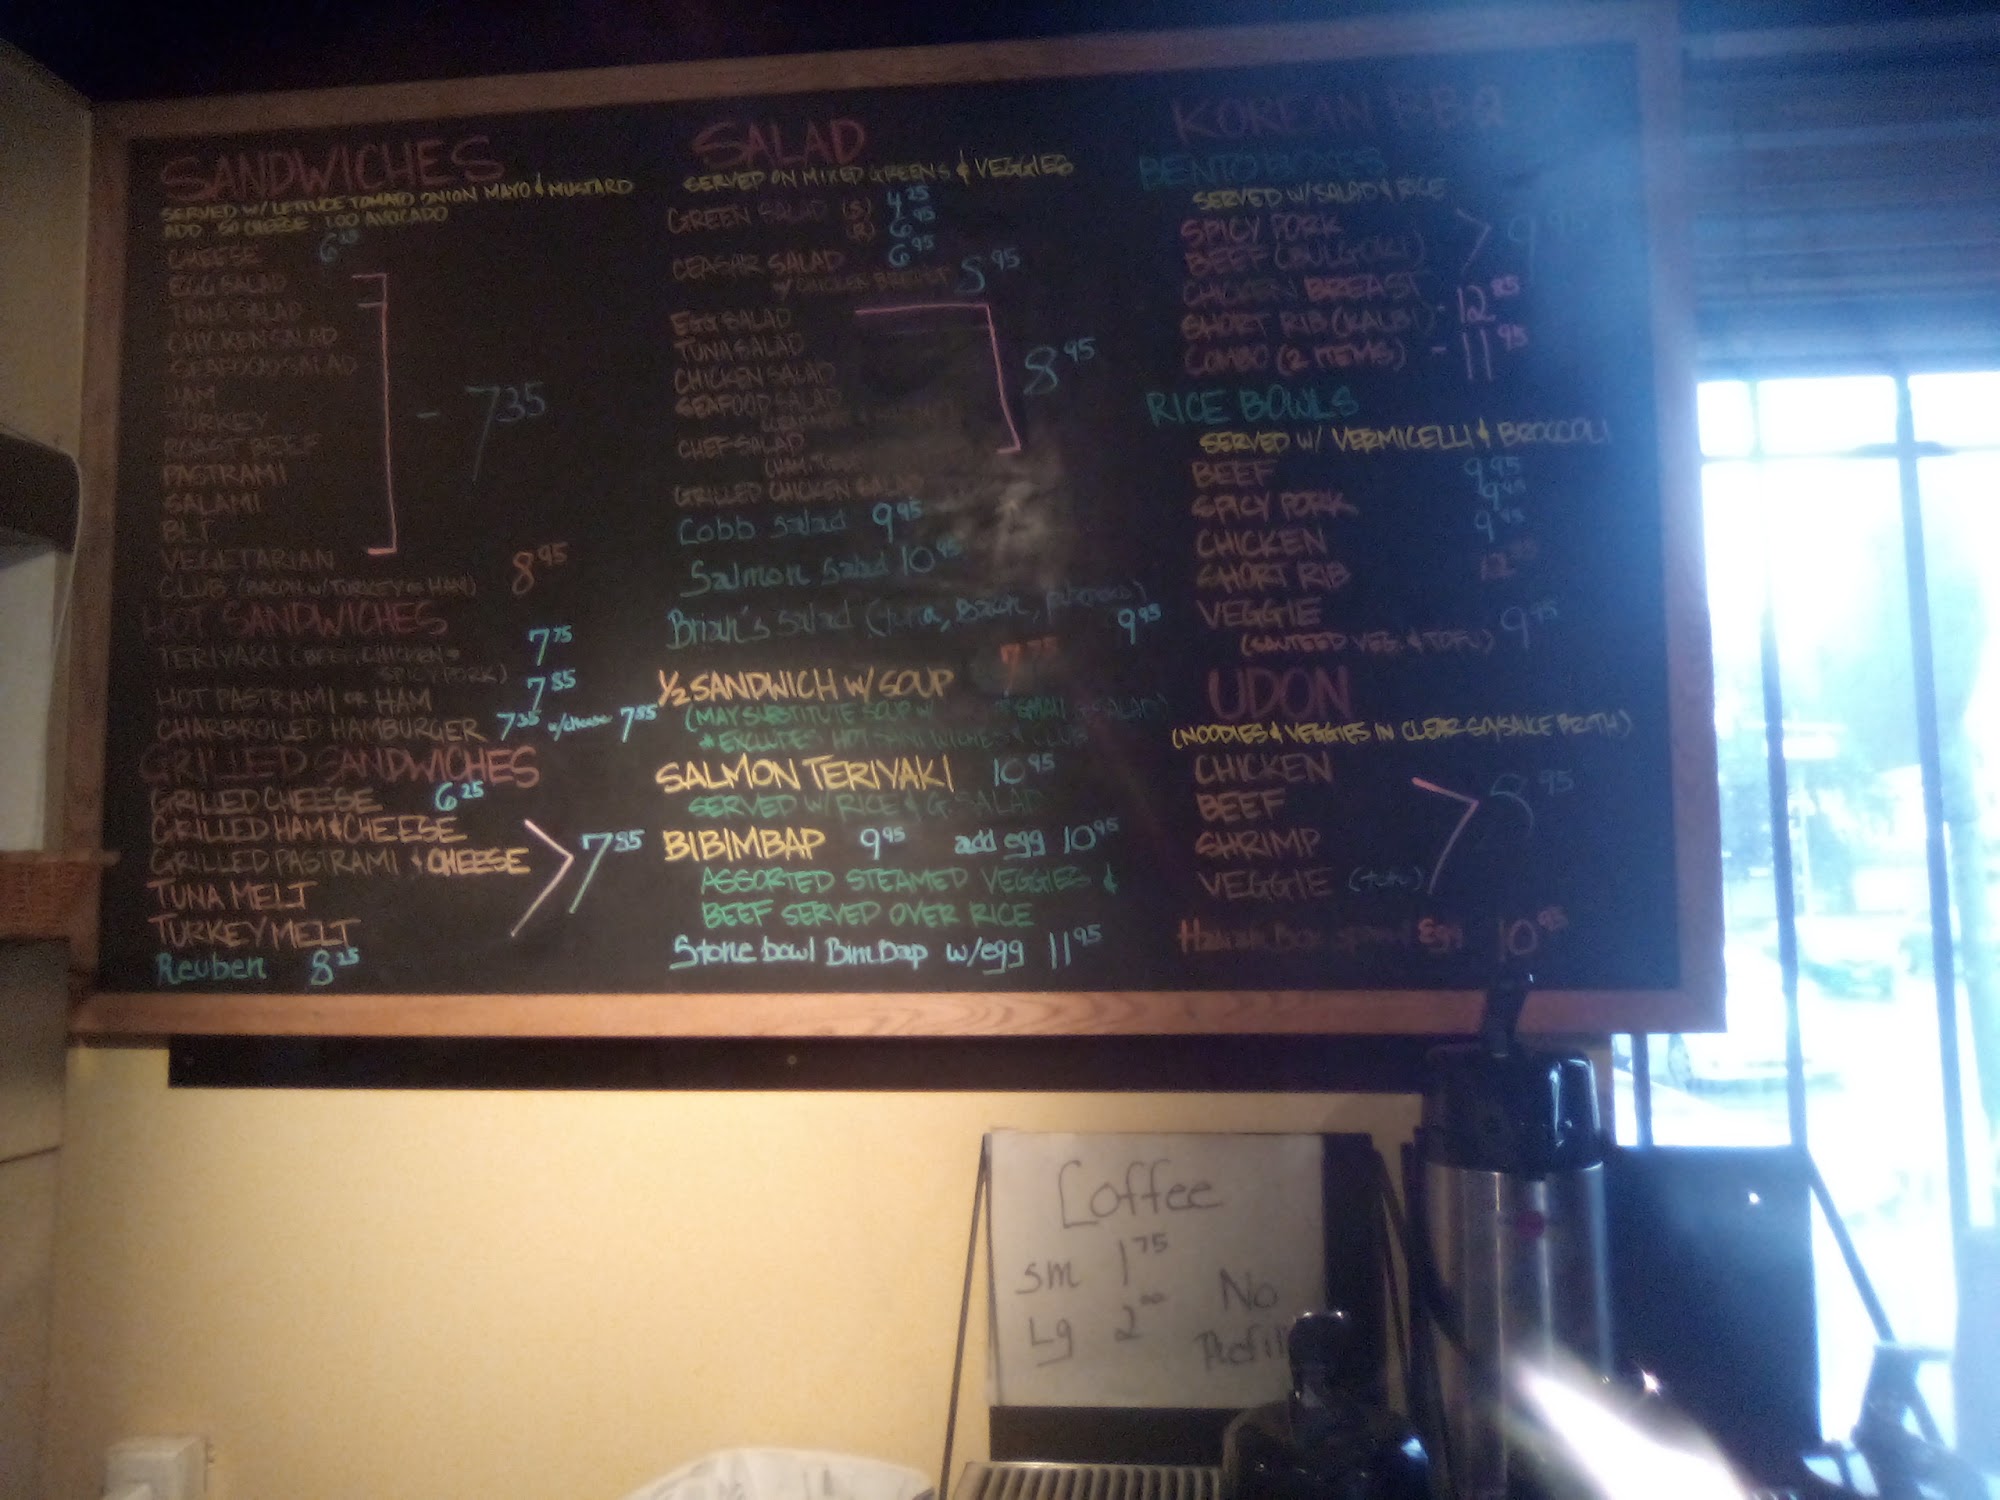 SANDWICHES
SERVED W/ LETTUCE TOMATO ONION MAYO & MUSTARD
ADD .50 CHEESE 1.00 AVOCADO
CHEESE 6 25
EGG SALAD
TUNA SALAD
CHICKEN SALAD
SEAFOOD SALAD
HAM
TURKEY
ROAST BEEF
- 7 35
PASTRAMI
SALAMI
BLT
VEGETARIAN
CLUB (BACON W/ TURKEY OR HAM) 8 95
HOT SANDWICHES
TERIYAKI (BEEF, CHICKEN OR
SPICY PORK) 7 75
HOT PASTRAMI OR HAM 7 85
CHARBROILED HAMBURGER 7 35 w/cheese 7 85
GRILLED SANDWICHES
GRILLED CHEESE 6 25
GRILLED HAM & CHEESE
GRILLED PASTRAMI & CHEESE
7 85
TUNA MELT
TURKEY MELT
Reuben 8 25
SALAD
SERVED ON MIXED GREENS & VEGGIES
GREEN SALAD (S) 4 25
6 95
CEASAR SALAD 6 95
W/ CHICKEN BREAST 95
EGG SALAD
TUNA SALAD
CHICKEN SALAD
8 95
SEAFOOD SALAD
CHEF SALAD
GRILLED CHICKEN SALAD
Cobb Salad 9 95
Salmon Salad 10 95
Brian's Salad (tuna, Bacon,
9 95
1/2 SANDWICH W/ SOUP 7 75
(MAY SUBSTITUTE SOUP W/ SALAD)
* EXCLUDES HOT SANDWICHES & CLUB
SALMON TERIYAKI 10 95
SERVED W/ RICE & G. SALAD
BIBIMBAP 9 95 add egg 10 95
ASSORTED STEAMED VEGGIES &
BEEF SERVED OVER RICE
Stone bowl BimBap w/egg 11 95
KOREAN BBQ
BENTO BOXES
SERVED W/ SALAD & RICE
SPICY PORK
9 95
BEEF (BULGOGI)
CHICKEN BREAST
SHORT RIB (KALBI) - 12 95
COMBO (2 ITEMS) - 11 95
RICE BOWLS
SERVED W/ VERMICELLI & BROCCOLI
BEEF 9 95
SPICY PORK 9 95
CHICKEN 9 95
SHORT RIB 12
VEGGIE 9 95
(SAUTEED VEG. & TOFU)
UDON
(NOODLES & VEGGIES IN CLEAR SOY SAUCE BROTH)
CHICKEN
BEEF
95
SHRIMP
VEGGIE (tofu)
Egg 10 95
Coffee
sm 1 75
Lg 2 00
No
Refill